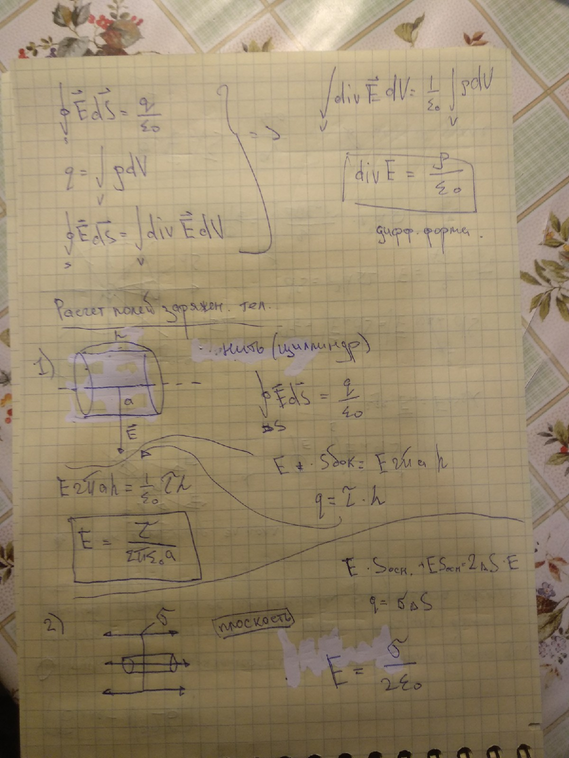 ∮ₛ E⃗dS⃗ = q/ε₀
q = ∫ᵥ ρdV
∮ₛ E⃗dS⃗ = ∫ᵥ div E⃗ dV
=>
∫ᵥ div E⃗ dV = 1/ε₀ ∫ᵥ ρdV
div E = ρ/ε₀
дифф. форма.
Расчет полей заряжен. тел.
1)
h
a
E⃗
нить (цилиндр)
∮ₛ E⃗dS⃗ = q/ε₀
E · Sбок = E2πah
q = τ · h
E2πah = 1/ε₀ τh
E = τ/2πε₀a
2)
σ
плоскость
E · Sосн. + ESосн = 2ΔS · E
q = σΔS
E = σ/2ε₀